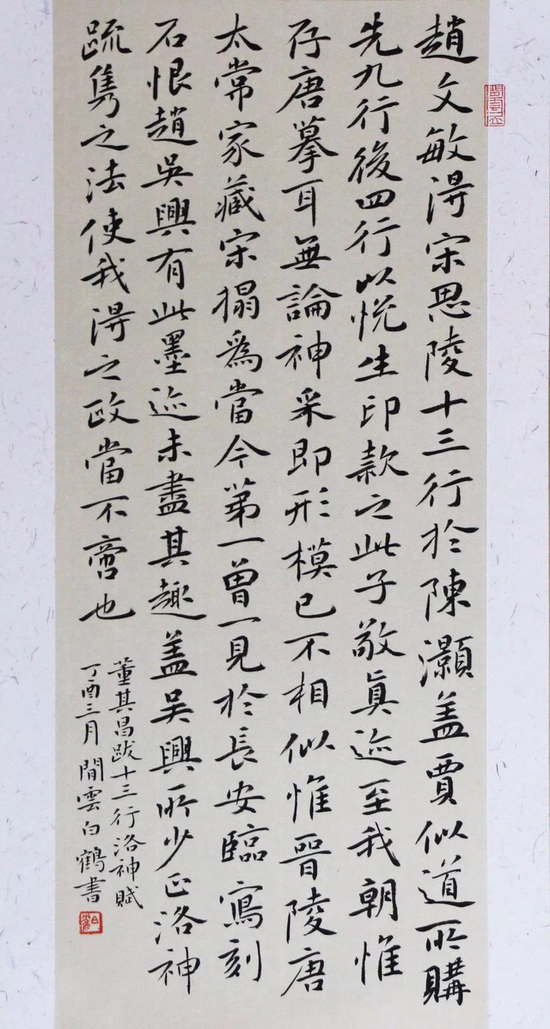 趙文敏得宋思陵十三行於陳灝蓋賈似道所購
先九行後四行以悅生印款之此子敬真迹至我朝惟
存唐摹耳無論神采即形模已不相似惟晉陵唐
太常家藏宋搨為當今第一曾一見於長安臨寫刻
石恨趙吳興有此墨迹未盡其趣蓋吳興所少正洛神
疏雋之法使我得之政當不啻也
董其昌跋十三行洛神賦
丁酉三月閒雲白鶴書